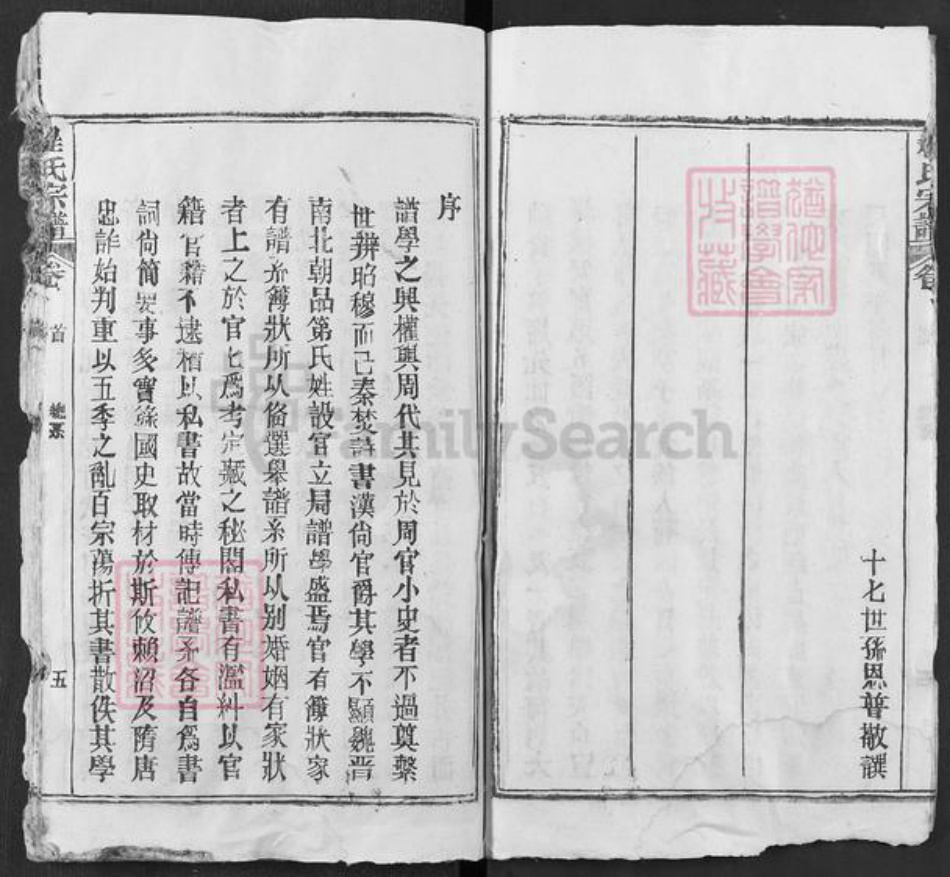 十七世孫恩普敬譔
氏宗譜
卷
序
譜學之興權輿周代其見於周官小史者不過奠繫
世辨昭穆而已秦焚詩書漢尙官爵其學不顯魏晉
南北朝品第氏姓設官立局譜學盛焉官有簿狀家
有譜系簿狀所以備選舉譜系所以别婚姻有家狀
者上之於官官爲考定藏之秘閣私書有濫糾以官
籍官籍不逮稽以私書故當時傳記譜系各自爲書
詞尙簡要事多實錄國史取材於斯攸賴沿及隋唐
忠詐始判重以五季之亂百宗蕩折其書散佚其學
氏宗譜
卷
首
總系
五
譜學會
收藏
FamilySearch